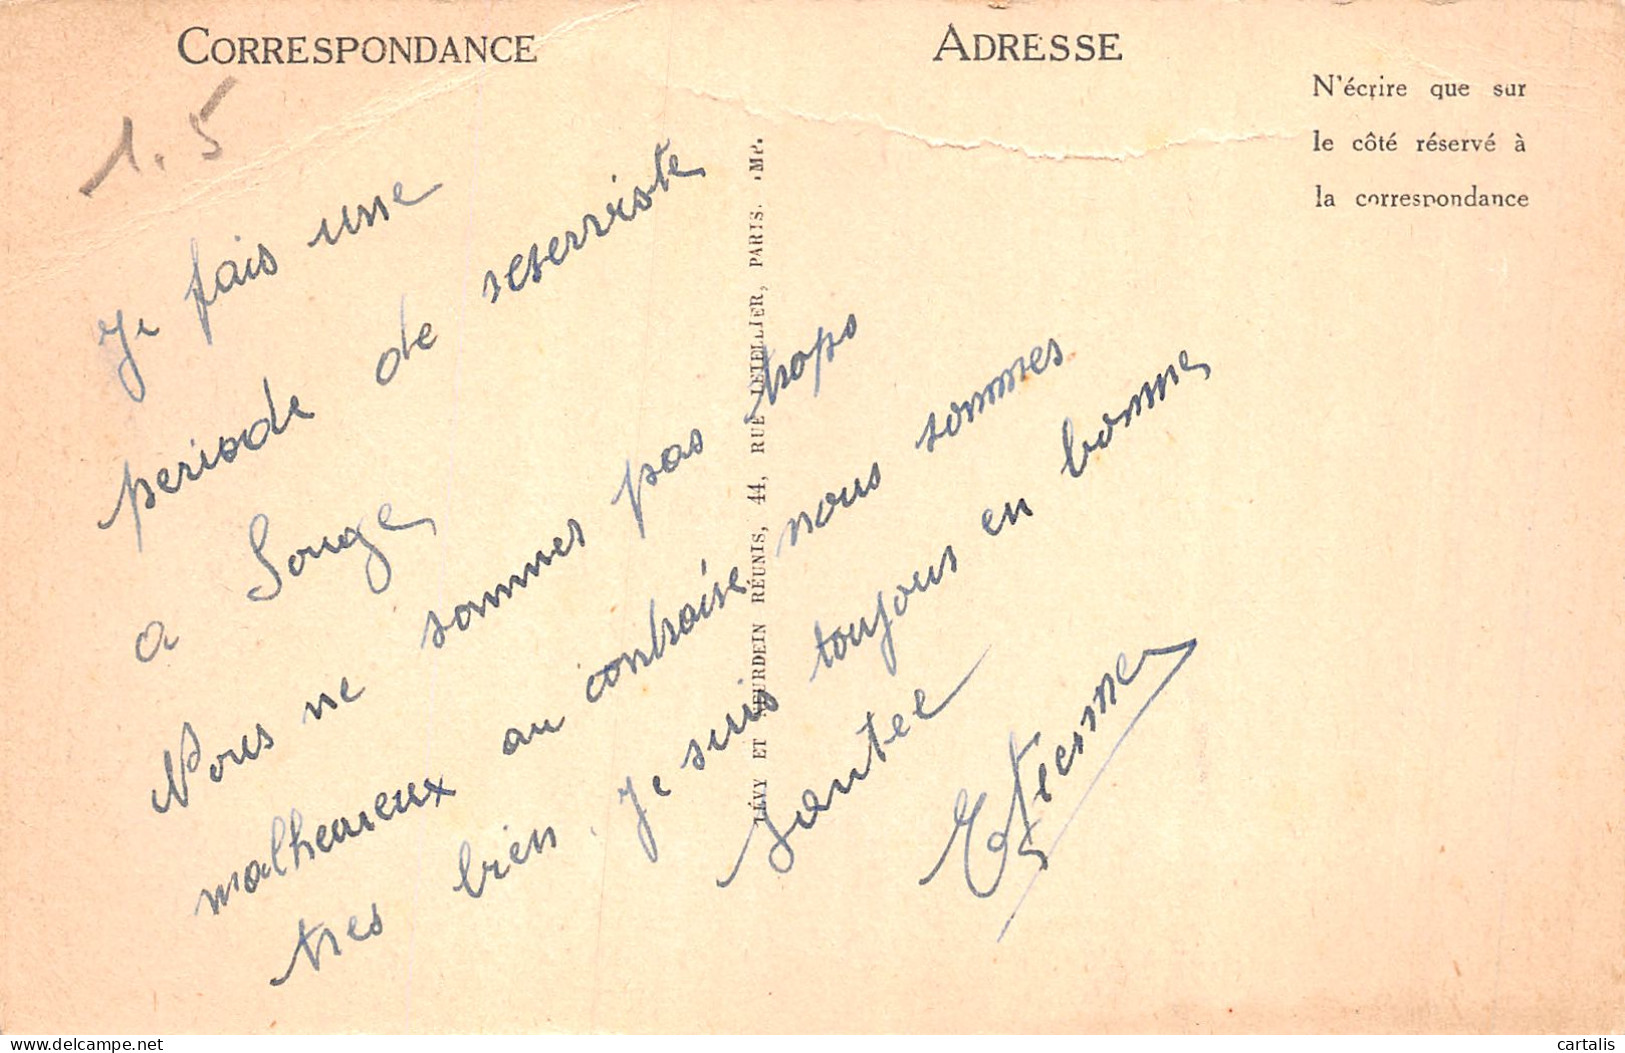 CORRESPONDANCE
ADRESSE
N'écrire que sur
le côté réservé à
la correspondance
1.5
Je fais une
periode de reserviste
a Souge
Nous ne sommes pas trops
malheureux au contraire nous sommes
tres bien. Je suis toujours en bonne
santee
Etienne
LÉVY ET NEURDEIN RÉUNIS, 44, RUE LETELLIER, PARIS.
cartalis
delcampe.net